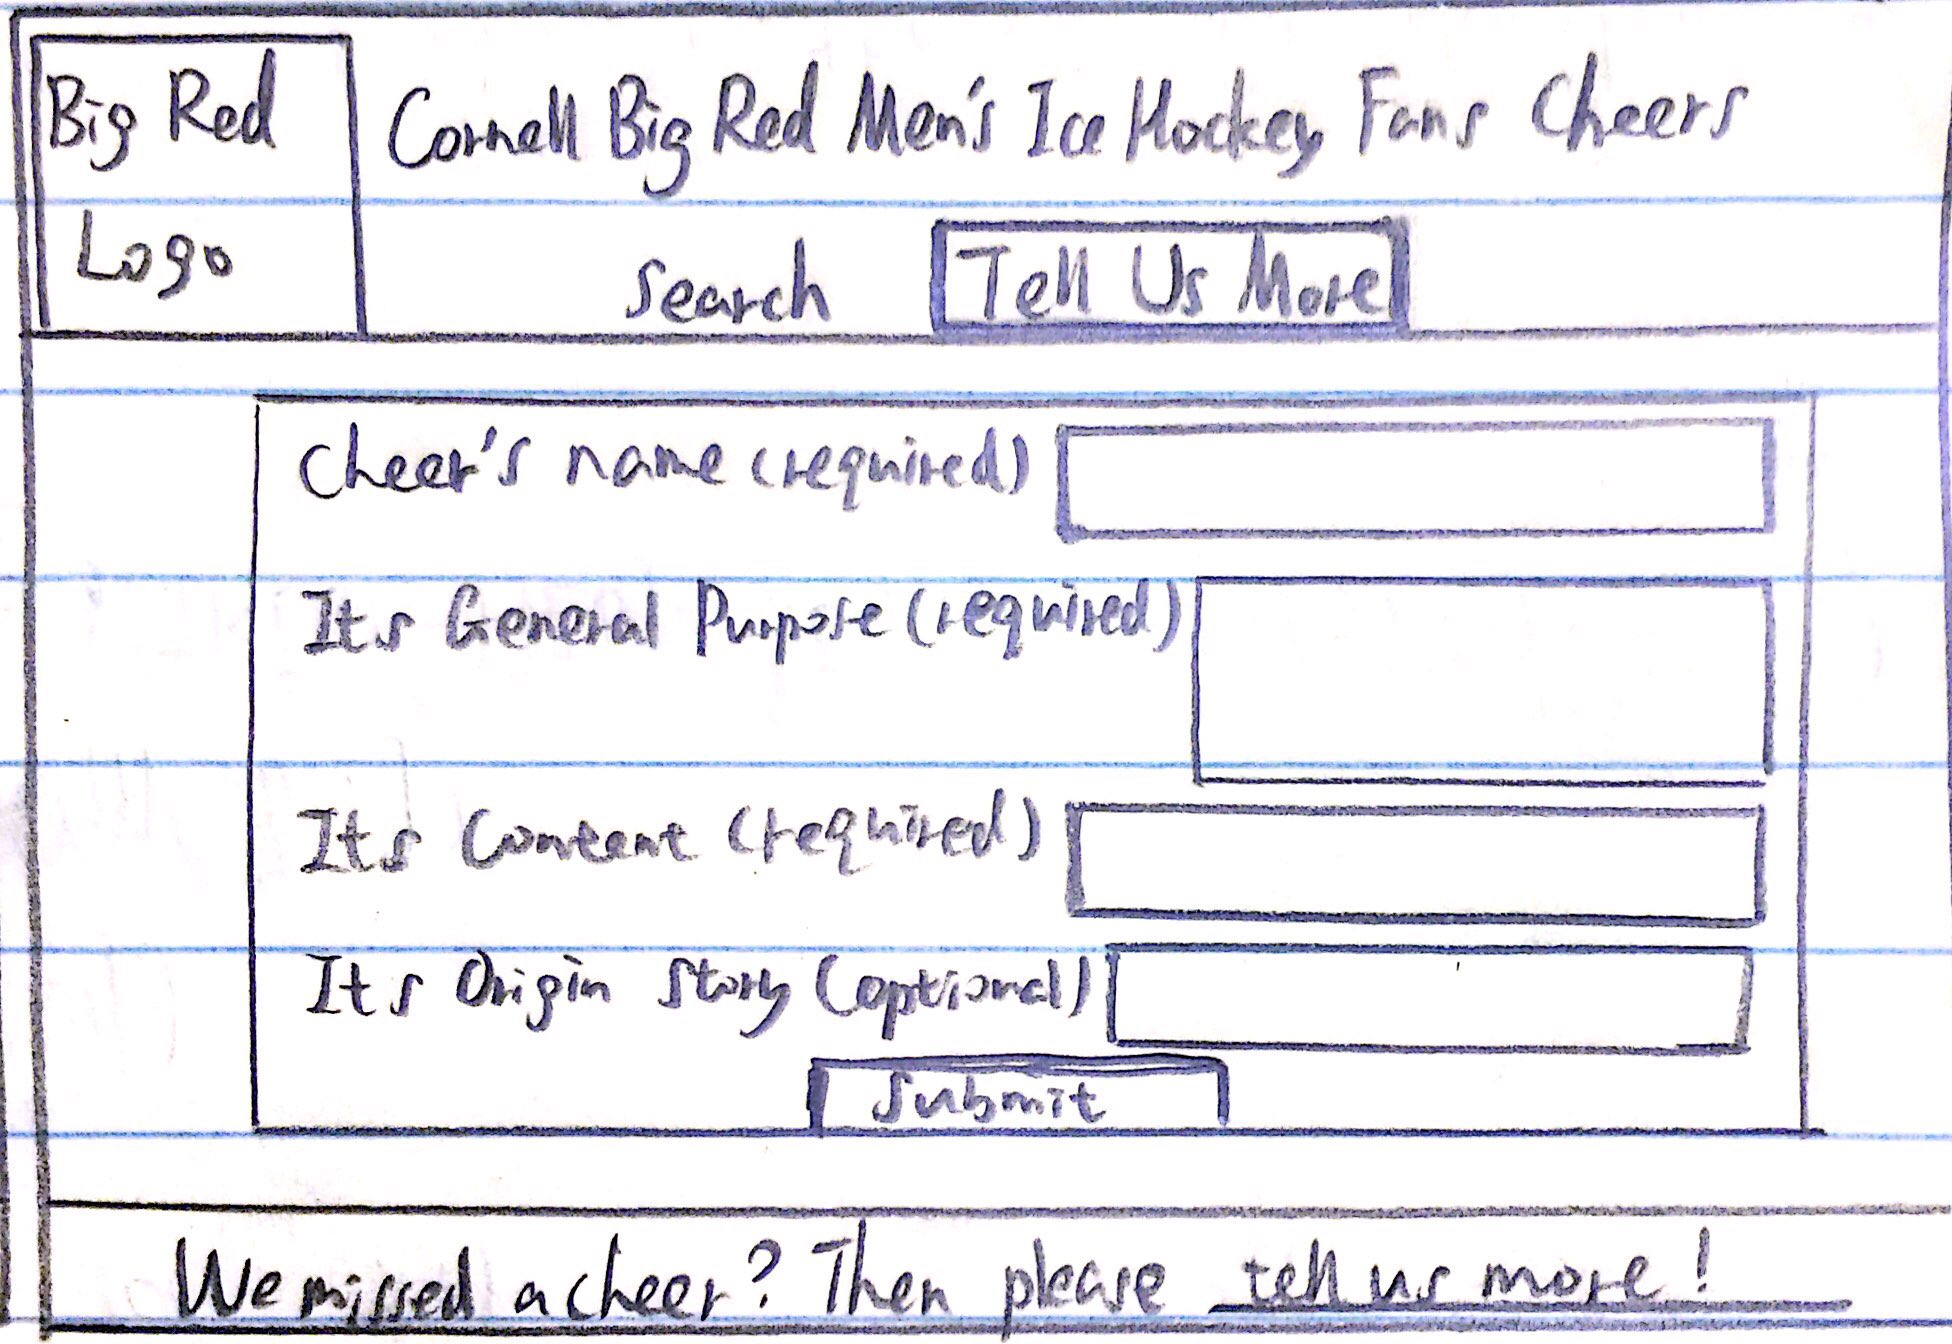 Big Red
Logo
Cornell Big Red Men's Ice Hockey Fans Cheers
Search Tell Us More
Cheer's name (required)
Its General Purpose (required)
Its Content (required)
Its Origin Story (optional)
Submit
We missed a cheer? Then please tell us more!